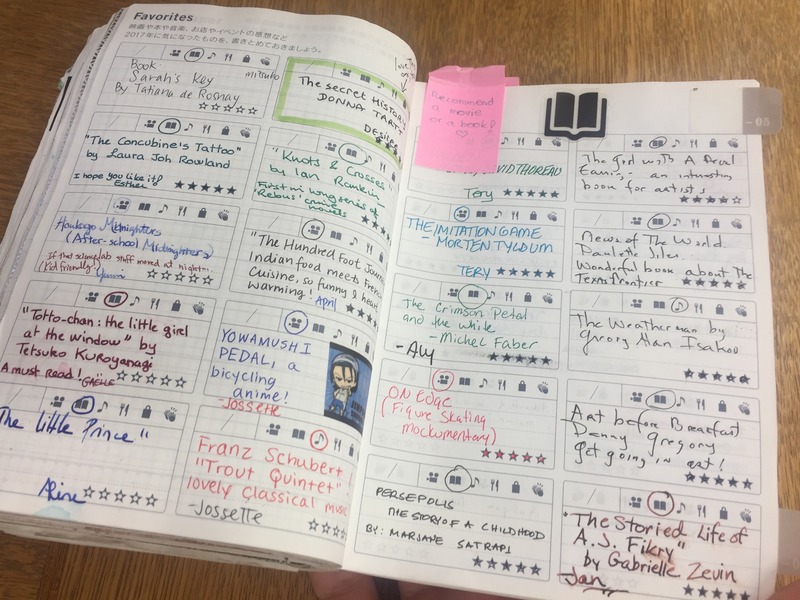 Favorites
映画や本や音楽、お店やイベントの感想など
2017年に気になったものを、書きとめておきましょう。
Book
Sarah's Key
By Tatiana de Rosnay
mitsuko
The secret History
DONNA TARTT
Desiree
"The Concubine's Tattoo"
by Laura Joh Rowland
I hope you like it!
Esther
"Knots & Crosses"
by Ian Rankin
First in
series of
"Rebus" crime
novels
Houkago Midnighters
(After-school Midnighters)
If that science lab stuff moved at night...
(Kid friendly!)
Yumi
"The Hundred Foot Journey
Indian food meets French
Cuisine, so funny & heart
warming!
April
"Totto-chan: the little girl
at the window" by
Tetsuko Kuroyanagi
A must read!
GAËLLE
YOWAMUSHI
PEDAL, a
bicycling
anime!
-Jossette
The little Prince"
Aline
Franz Schubert
"Trout Quintet"
lovely classical music
-Jossette
Recommend
a movie
or a book?
- 05
DAVID THOREAU
Tery
THE IMITATION GAME
- MORTEN TYLDUM
TERY
The Crimson Petal
and the white
- Michel Faber
- Aly
ON EDGE
(Figure Skating
mockumentary)
PERSEPOLIS
THE STORY OF A CHILDHOOD
BY: MARJANE SATRAPI
The girl with A Pearl
Earring - an interesting
book for artists
News of The World.
Paulette Jiles.
Wonderful book about The
Texas frontier
The Weatherman by
Gregory Alan Isakov
Art before Breakfast
Danny Gregory
get going in art!
"The Storied Life of
A.J. Fikry"
by Gabrielle Zevin
Jan